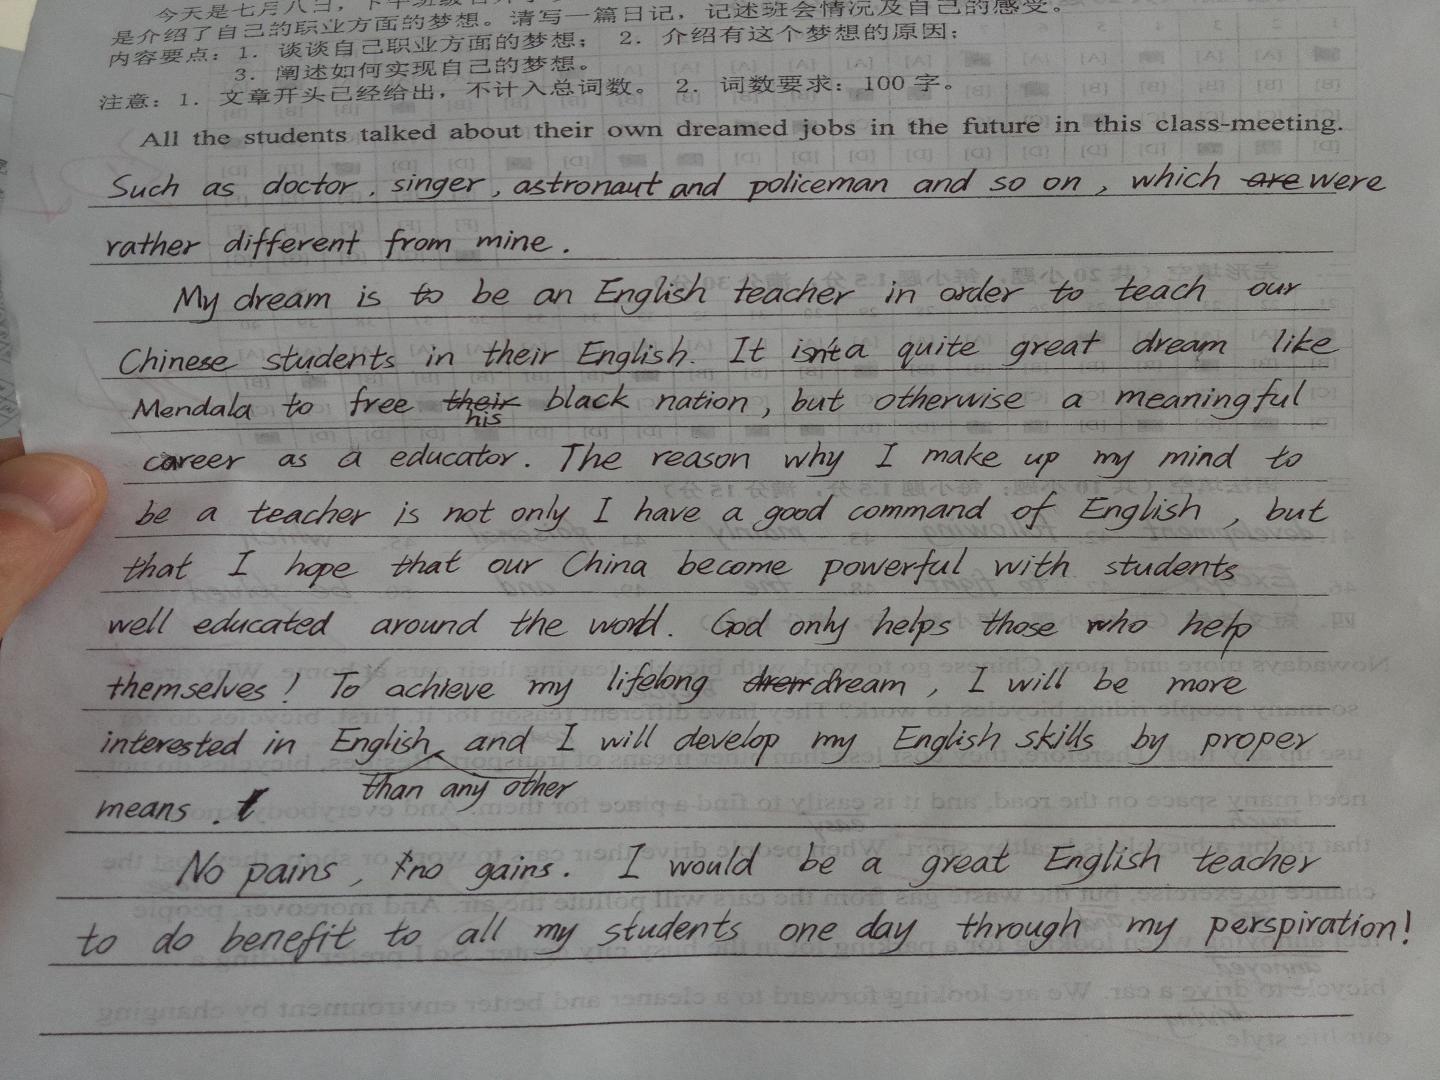 今天是七月八日，下午班级召开
是介绍了自己的职业方面的梦想。请写一篇日记，记述班会情况及自己的感受。
内容要点：1. 谈谈自己职业方面的梦想； 2. 介绍有这个梦想的原因；
3. 阐述如何实现自己的梦想。
注意：1. 文章开头已经给出，不计入总词数。 2. 词数要求：100 字。
All the students talked about their own dreamed jobs in the future in this class-meeting.
Such as doctor, singer, astronaut and policeman and so on, which are were
rather different from mine.
My dream is to be an English teacher in order to teach our
Chinese students in their English. It isn't a quite great dream like
Mendala to free their his black nation, but otherwise a meaningful
career as a educator. The reason why I make up my mind to
be a teacher is not only I have a good command of English, but
that I hope that our China become powerful with students
well educated around the world. God only helps those who help
themselves! To achieve my lifelong dream, I will be more
interested in English than any other and I will develop my English skills by proper
means.
No pains, no gains. I would be a great English teacher
to do benefit to all my students one day through my perspiration!